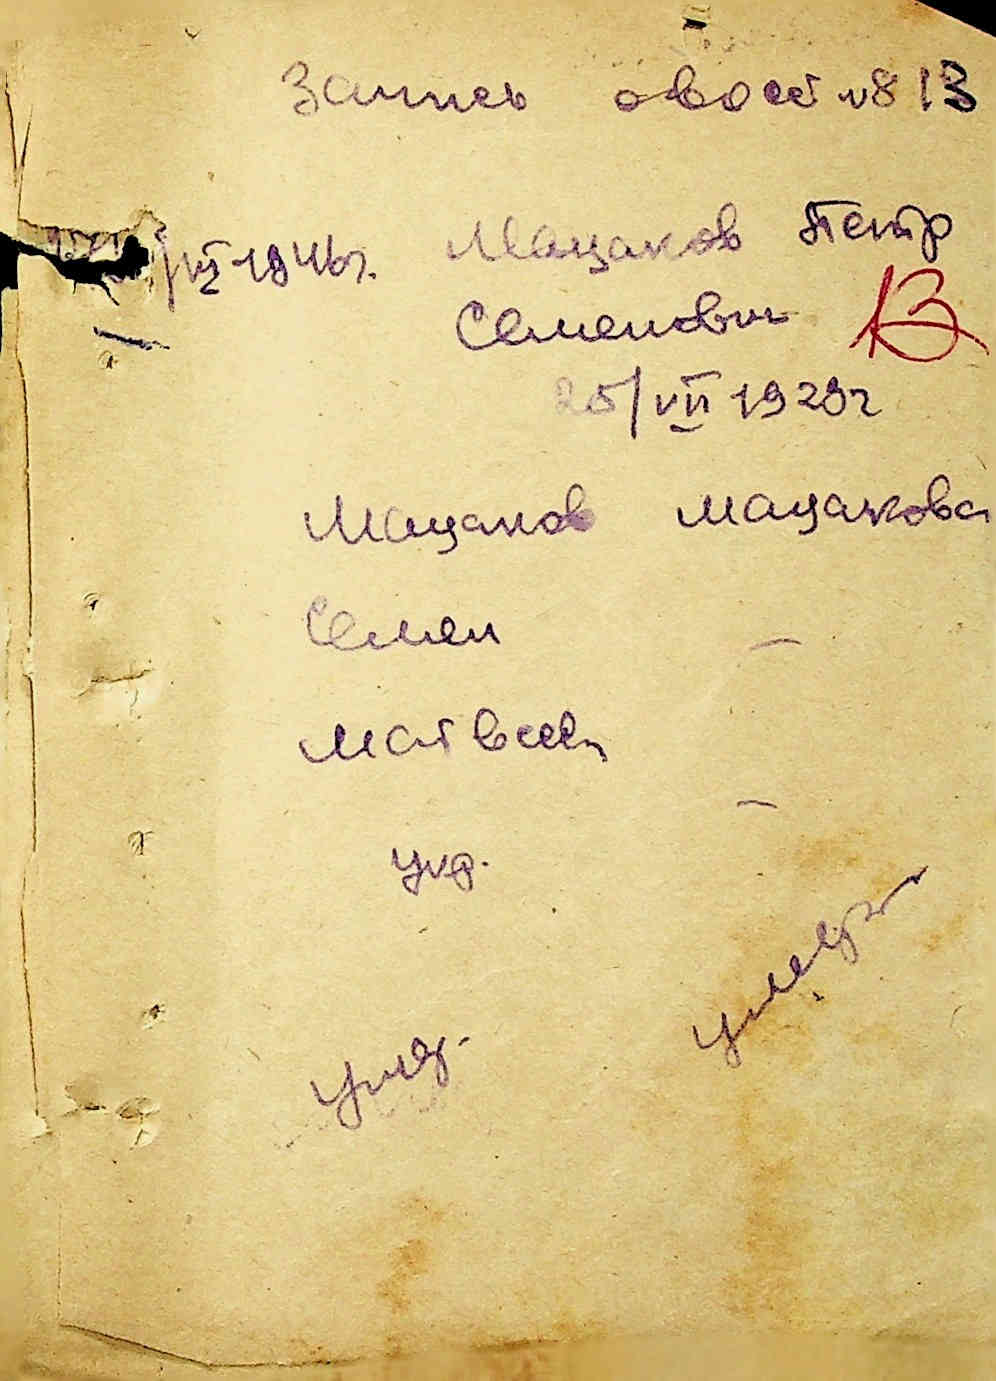 Запись овост №813
/VII-1946г. Мацаков Петр
Семенович 13
25/VII 1929г
Мацаков Мацакова
Семен –
Матвеев. –
укр.